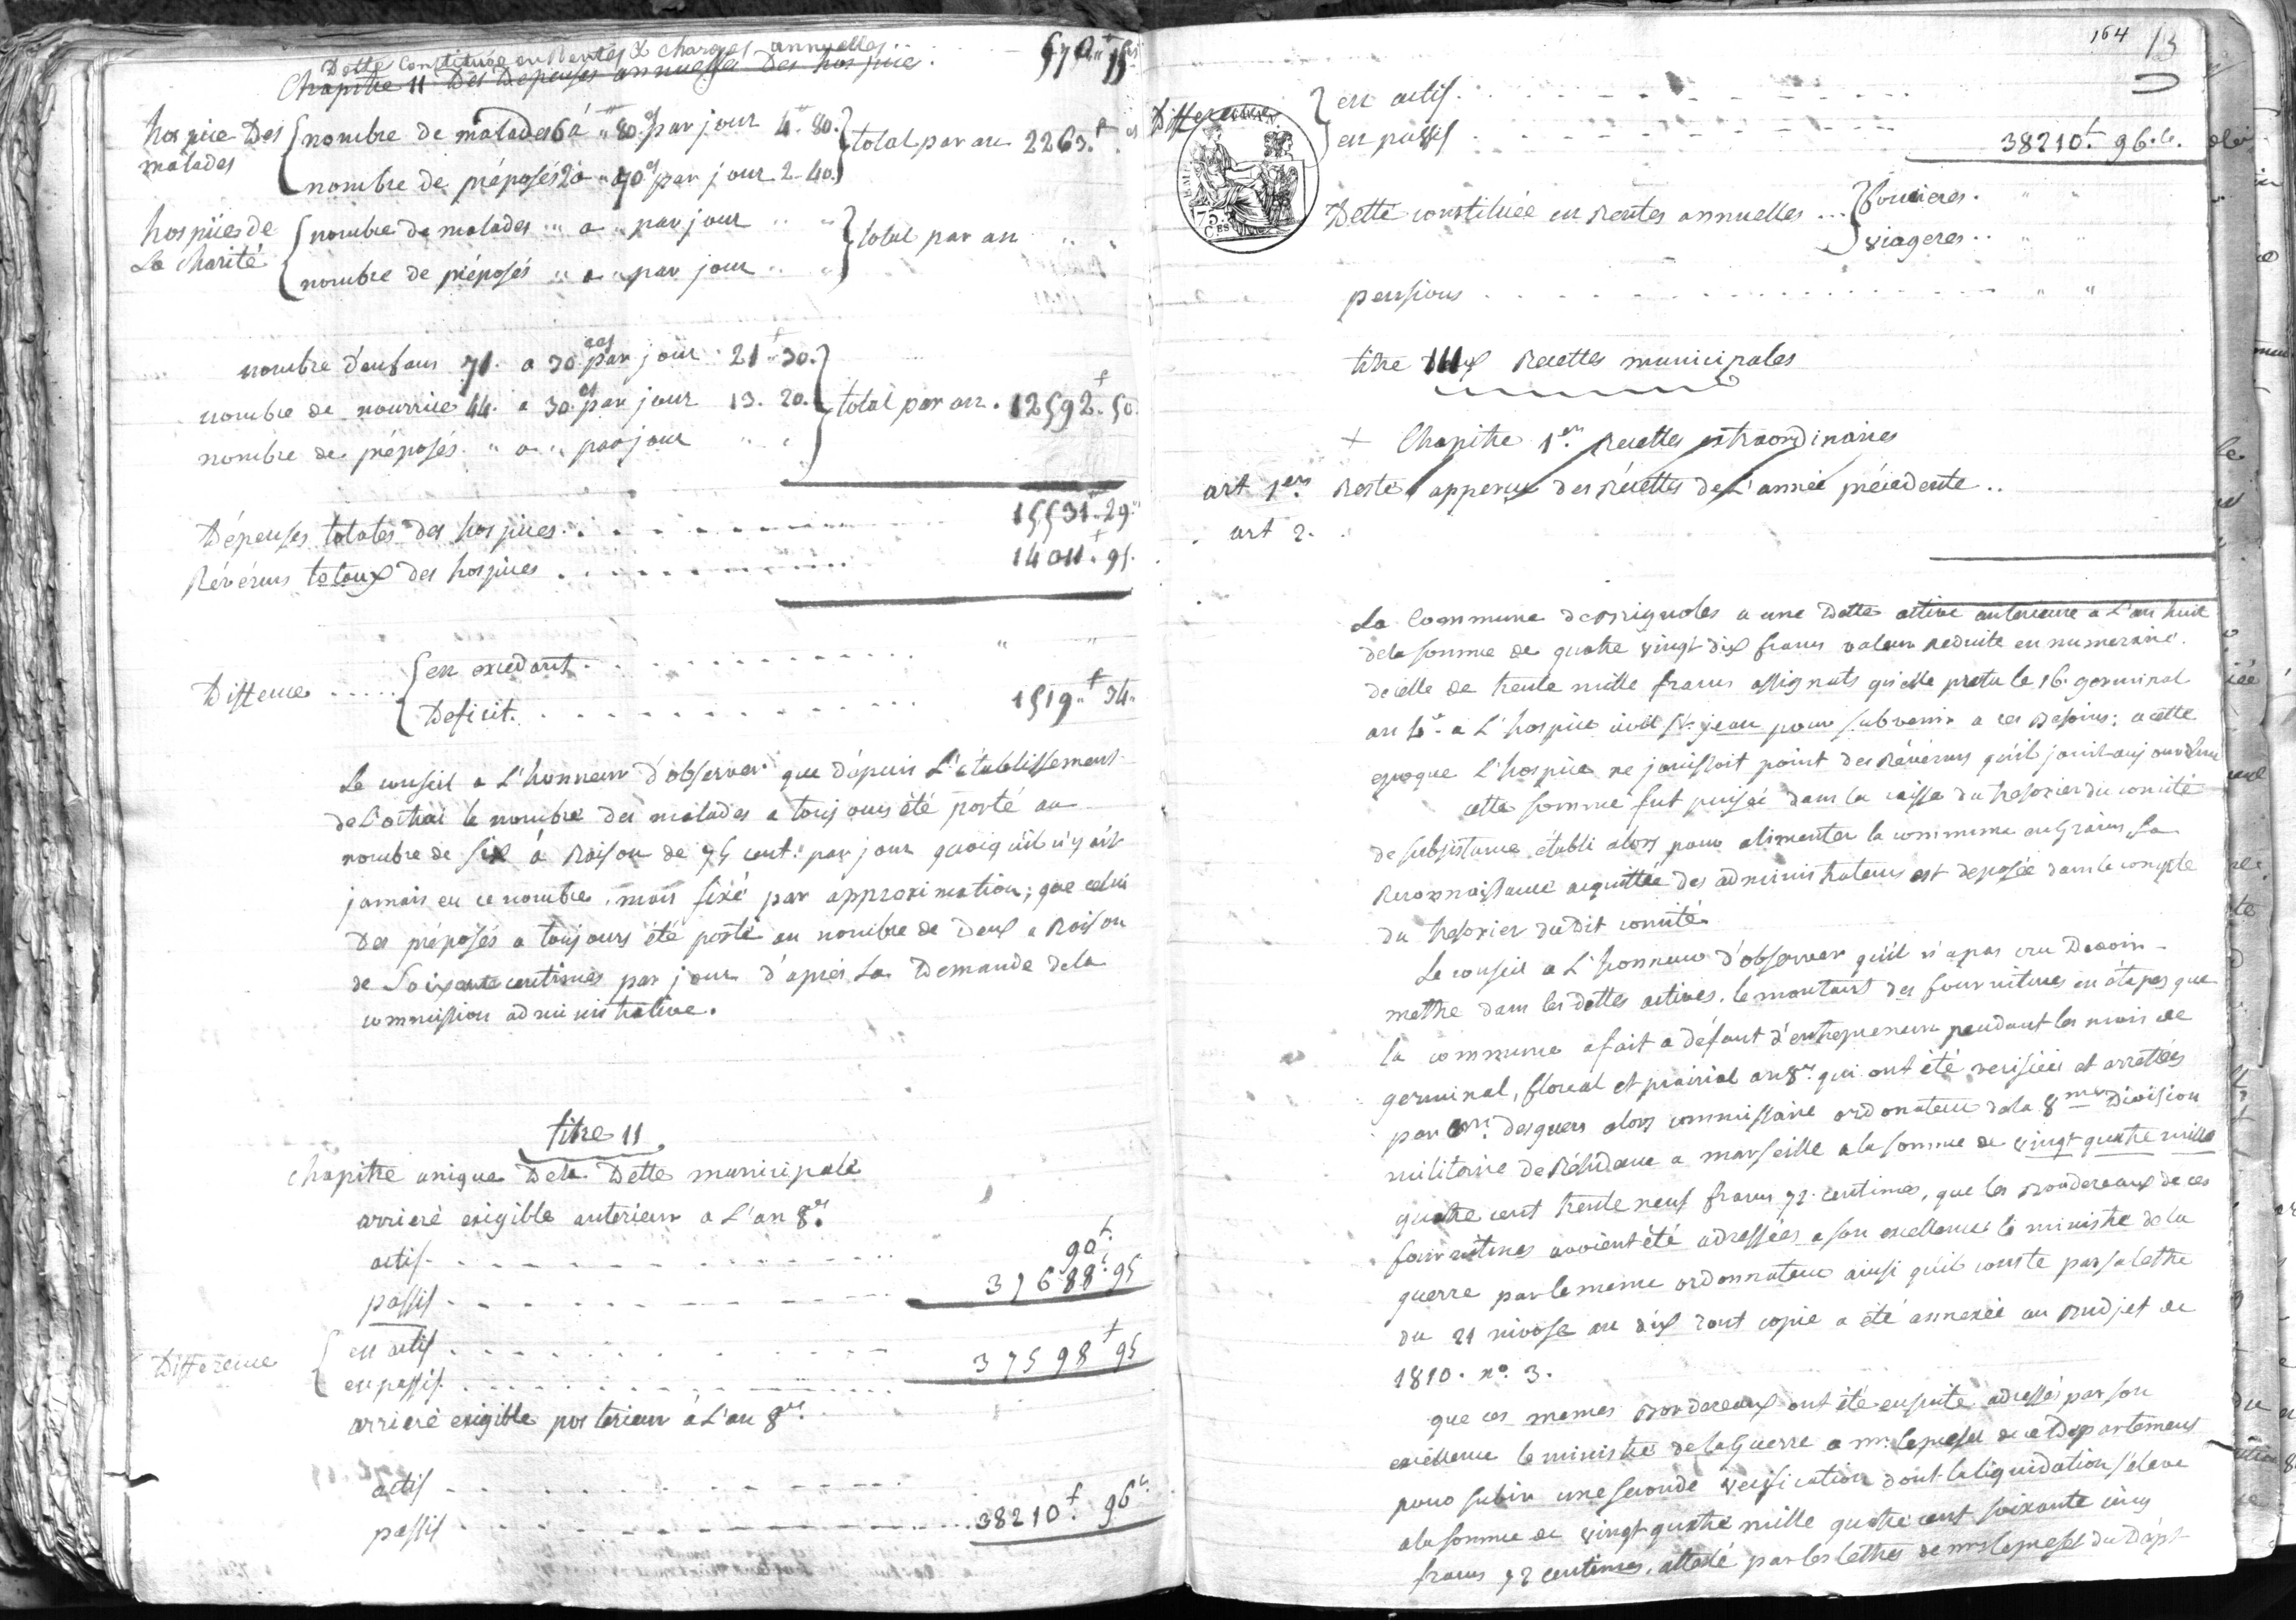 Dette Constituée en Rentes & charges annuelles..
Chapitre 11 Des Depenses annuelles Des hospices.
hospice Des malades
nombre de malades 6 à " 80.cs par jour 4.f 80.
total par an 2263.f
nombre de préposés 2 à par jour 2.40.
hospices de La charité
nombre de malades " a " par jour " "
total par an " "
nombre de préposés " a " par jour " "
nombre d'enfans 71. a 30.ces par jour 21.f 30.
nombre de nourrice 44. a 30.cs par jour 13. 20.
total par an. 12592.f 50.
nombre de préposés " a " par jour " "
Dépenses totales des hospices . . . . . . 15531.f 29."
Révénus totaux des hospices . . . . . . 14011.f 95.
Differenceen excedant . . . . . . " "
Deficit . . . . . . 1519.f 34."
Le conseil a L'honneur d'observer que dépuis L'établissement
de L'octroi le nombre des malades a toujours été porté au
nombre de six à Raison de 75 cent.s par jour quoiqu'il n'y ait
jamais eu ce nombre, mais fixé par approximation; que celui
Des préposés a toujours été porté au nombre de Deux a Raison
de Soixante centimes par jour d'après La Demande de la
commission administrative.
titre 11
chapitre unique De la Dette municipale
arrieré exigible anterieur a L'an 8.e
actif . . . . . . 90.f
passif . . . . . . 37688.f 95
Difference
en actif . . . . . .
en passif . . . . . . 37598f 95
arrieré exigible posterieur à L'an 8.e
actif . . . . . .
passif . . . . . . 38210.f 96c.
164 13
Difference
en actif . . . . . .
en passif . . . . . . 38210.f 96.c.
75. Ces
Dette constituée en Rentes annuelles ...
foncieres. " "
viageres.. " "
pensions . . . . . . " "
titre 111 Recettes municipales
+ Chapitre 1.er Recettes extraordinaires
art 1er Reste apperçu des Récettes de L'année précedente ..
art 2.
La Commune de Brignoles a une Dette active anterieure a L'an huit
de la somme de quatre vingt dix francs valeur reduite en numeraire.
de celle de trente mille francs assignats qu'elle preta le 16. germinal
an a L'hospice civil St. jean pour subvenir a ses Besoins; a cette
epoque L'hospice ne jouissoit point des Révénus qu'il jouit aujourdhui
cette somme fut puisée dans la caisse du tresorier du comité
de subsistance établi alors pour alimenter la commune en Grains La
Reconnoissance acquittée des administrateurs est deposée dans le compte
du tresorier dudit comité
Le conseil a L'honneur d'observer qu'il n'a pas cru Devoir
mettre dans les dettes actives, le montant des fournitures en étapes que
la commune a fait a défaut d'entrepreneur pendant les mois de
germinal, floreal et prairial an 8.e qui ont été verifiées et arrettées
par alors commissaire ordonateur de la 8me. Division
militaire de Résidence a marseille a la somme de vingt quatre mille
quatre cent trente neuf francs 72. centimes, que les Bordereaux de ces
fournitures avoient été adressées a son excellence le ministre de la
guerre par le meme ordonnateur ainsi qu'il conste par sa lettre
du 21 nivose an dix dont copie a été annexée au Budjet de
1810. no. 3.
que ces memes Bordereaux ont été ensuite adressés par son
excéllence le ministre de la Guerre a mr. le prefet de ce Departement
pour subir une seconde verification dont la liquidation s'éleve
a la somme de vingt quatre mille quatre cent soixante cinq
francs 72 centimes, attesté par les lettres de mr. le prefet du Dépt